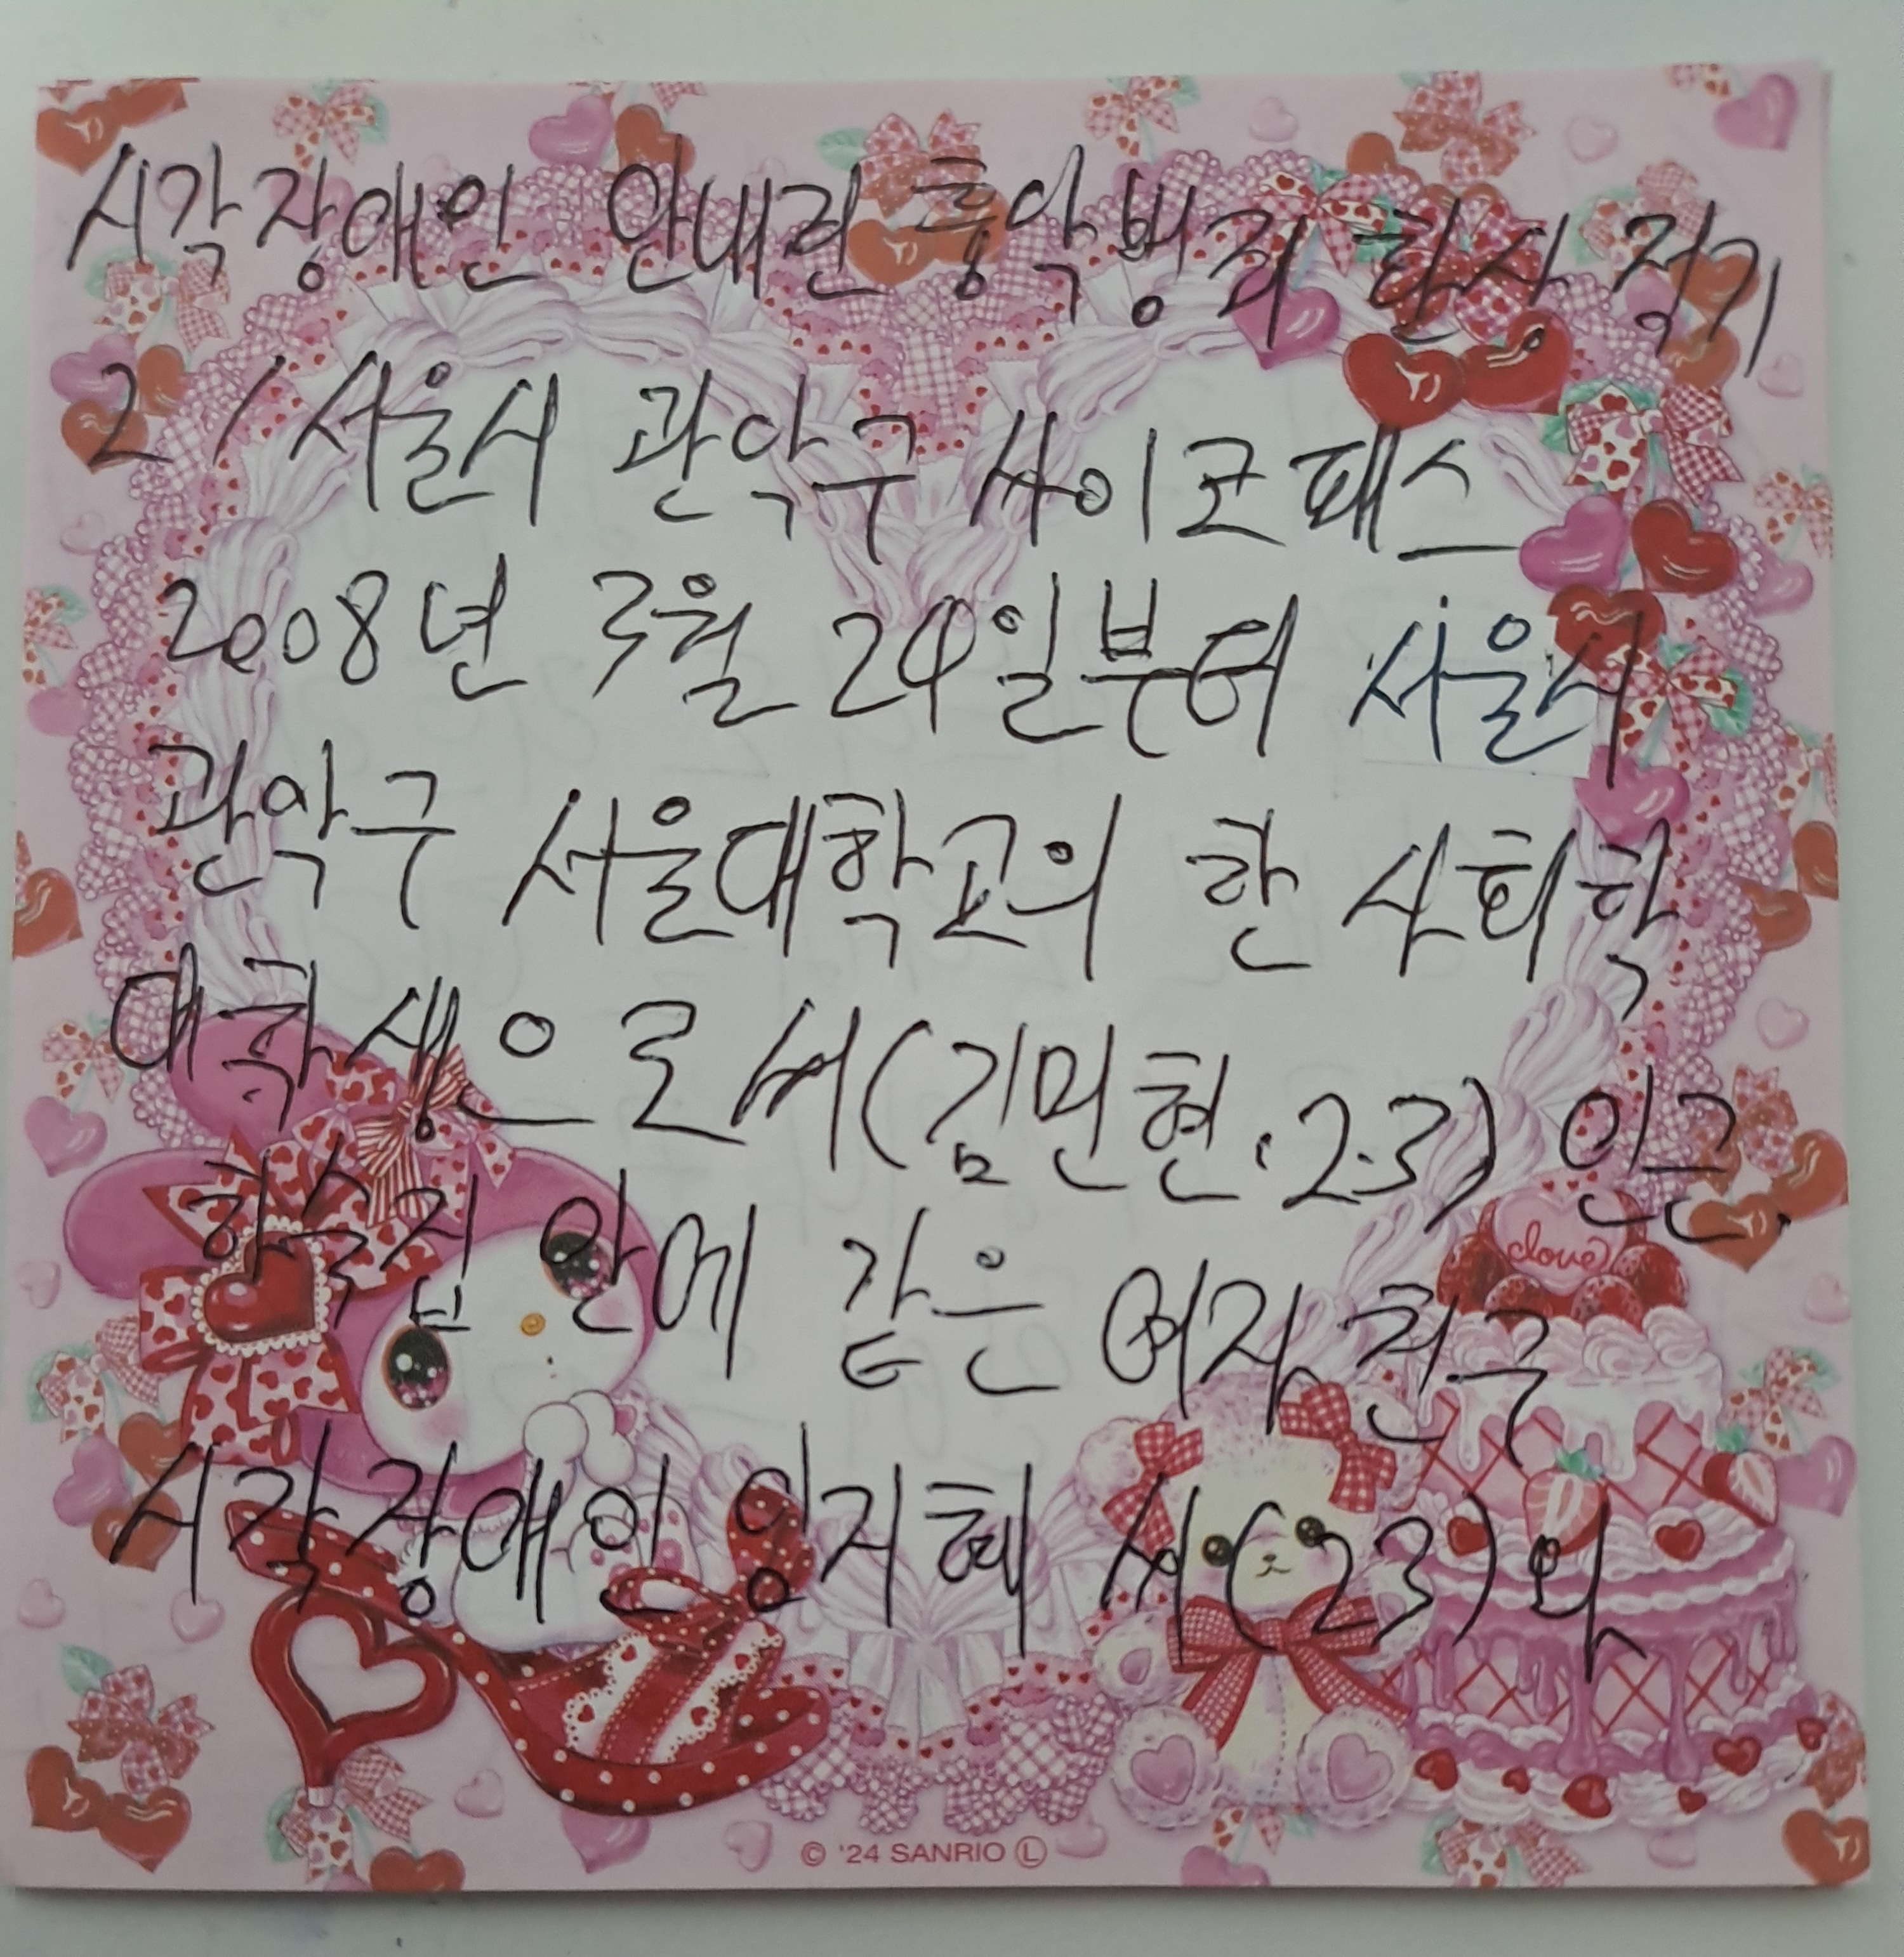 시각장애인 안내견 흉악범죄 한사 적기
2/서울시 관악구 싸이코패스
2008년 3월 24일부터 서울시
관악구 서울대학교의 한 사회학
대학생으로써(김민현·23) 인근
하숙집 안에 같은 여자친구
시각장애인 임지혜 씨(23)와
love
© '24 SANRIO Ⓛ